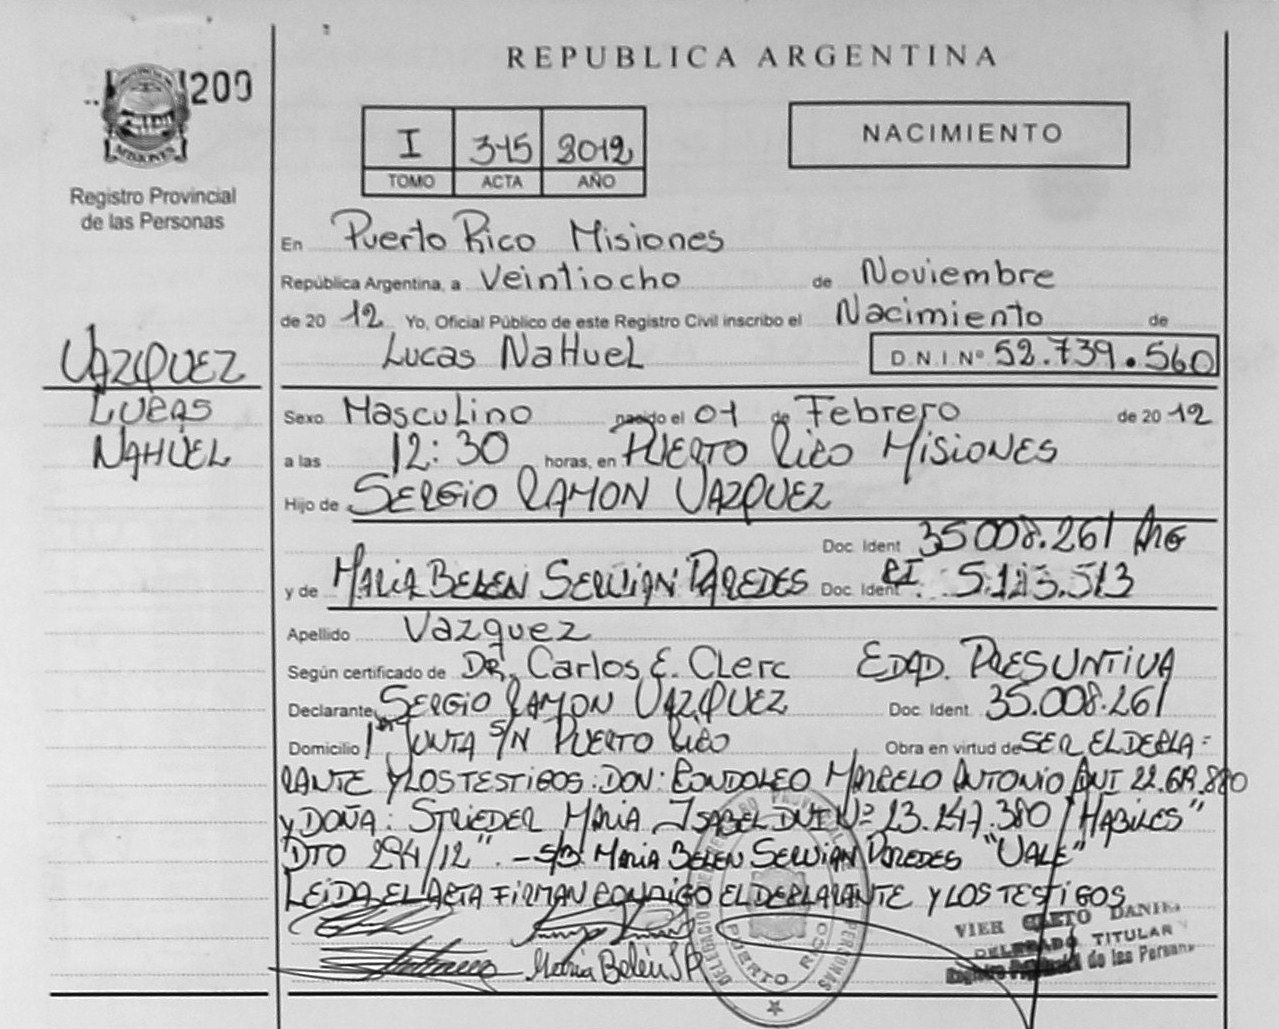 REPUBLICA ARGENTINA
209
MISIONES
Registro Provincial
de las Personas
I 345 2012
TOMO ACTA AÑO
NACIMIENTO
En Puerto Rico Misiones
República Argentina, a Veintiocho de Noviembre
de 20 12 Yo, Oficial Público de este Registro Civil inscribo el Nacimiento de
Lucas NaHueL D.N.I.Nº 52.739.560
VAZQUEZ
LUCAS
NAHUEL
Sexo MascuLino nacido el 01 de Febrero de 20 12
a las 12:30 horas, en PUERTO RICO MISIONES
Hijo de SERGIO RAMON VAZQUEZ
Doc. Ident. 35.008.261 ARG
y de MARIA BELEN SERVIAN PAREDES Doc. Ident. CI. 5.123.513
Apellido Vazquez
Según certificado de DR. Carlos E. CLerc EDAD PRESUNTIVA
Declarante SERGIO RAMON VAZQUEZ Doc. Ident. 35.008.261
Domicilio 1º JUNTA S/N PUERTO RICO Obra en virtud de SER EL DECLA=
RANTE Y LOS TESTIGOS: DON: MARCELO ANTONIO DNI
Y DOÑA: STRIEDER MARIA ISABEL DNI Nº 23.247.380 / HABILES"
DTO 294/12". - S/B: MARIA BELEN SERVIAN PAREDES "VALE"
LEIDA EL ACTA FIRMAN CONMIGO EL DECLARANTE Y LOS TESTIGOS
Maria Belén S P
PUERTO RICO
VIER CLETO DANIEL
DELEGADO TITULAR
Registro Provincial de las Personas